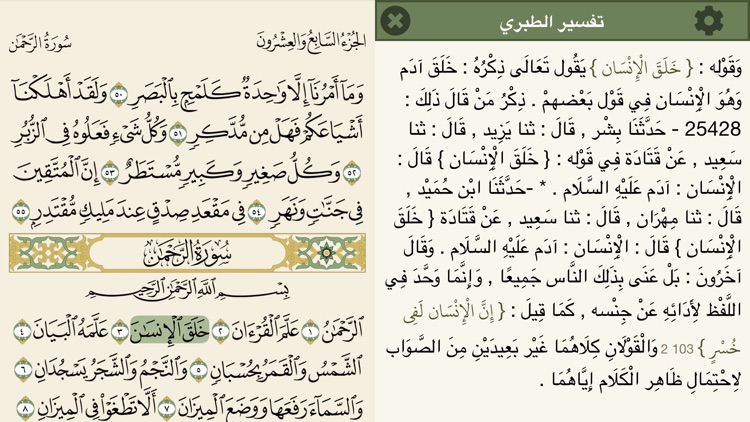 الجُزْءُ السَّابِعُ وَالعِشْرُونَ
سُورَةُ الرَّحْمَٰن
وَمَآ أَمْرُنَآ إِلَّا وَٰحِدَةٌ كَلَمْحٍۭ بِٱلْبَصَرِ ٥٠ وَلَقَدْ أَهْلَكْنَآ
أَشْيَاعَكُمْ فَهَلْ مِن مُّدَّكِرٍ ٥١ وَكُلُّ شَىْءٍ فَعَلُوهُ فِى ٱلزُّبُرِ
٥٢ وَكُلُّ صَغِيرٍ وَكَبِيرٍ مُّسْتَطَرٌ ٥٣ إِنَّ ٱلْمُتَّقِينَ
فِى جَنَّٰتٍ وَنَهَرٍ ٥٤ فِى مَقْعَدِ صِدْقٍ عِندَ مَلِيكٍ مُّقْتَدِرٍۭ ٥٥
سُورَةُ الرَّحْمَٰن
بِسْمِ ٱللَّهِ ٱلرَّحْمَٰنِ ٱلرَّحِيمِ
ٱلرَّحْمَٰنُ ١ عَلَّمَ ٱلْقُرْءَانَ ٢ خَلَقَ ٱلْإِنسَٰنَ ٣ عَلَّمَهُ ٱلْبَيَانَ ٤
ٱلشَّمْسُ وَٱلْقَمَرُ بِحُسْبَانٍ ٥ وَٱلنَّجْمُ وَٱلشَّجَرُ يَسْجُدَانِ ٦
وَٱلسَّمَآءَ رَفَعَهَا وَوَضَعَ ٱلْمِيزَانَ ٧ أَلَّا تَطْغَوْا۟ فِى ٱلْمِيزَانِ ٨
تفسير الطبري
وَقَوْله : { خَلَقَ الْإِنْسَان } يَقُول تَعَالَى ذِكْرُهُ : خَلَقَ آدَم
وَهُوَ الْإِنْسَان فِي قَوْل بَعْضهمْ . ذِكْرُ مَنْ قَالَ ذَلِكَ :
25428 - حَدَّثَنَا بِشْر , قَالَ : ثنا يَزِيد , قَالَ : ثنا
سَعِيد , عَنْ قَتَادَة فِي قَوْله : { خَلَقَ الْإِنْسَان } قَالَ :
الْإِنْسَان : آدَم عَلَيْهِ السَّلَام . * -حَدَّثَنَا ابْن حُمَيْد ,
قَالَ : ثنا مِهْرَان , قَالَ : ثنا سَعِيد , عَنْ قَتَادَة { خَلَقَ
الْإِنْسَان } قَالَ : الْإِنْسَان : آدَم عَلَيْهِ السَّلَام . وَقَالَ
آخَرُونَ : بَلْ عَنَى بِذَلِكَ النَّاس جَمِيعًا , وَإِنَّمَا وَحَّدَ فِي
اللَّفْظ لِأَدَائِهِ عَنْ جِنْسه , كَمَا قِيلَ : { إِنَّ الْإِنْسَان لَفِي
خُسْر } 103 2 وَالْقَوْلَانِ كِلَاهُمَا غَيْر بَعِيدَيْنِ مِنَ الصَّوَاب
لِاحْتِمَالِ ظَاهِر الْكَلَام إِيَّاهُمَا .